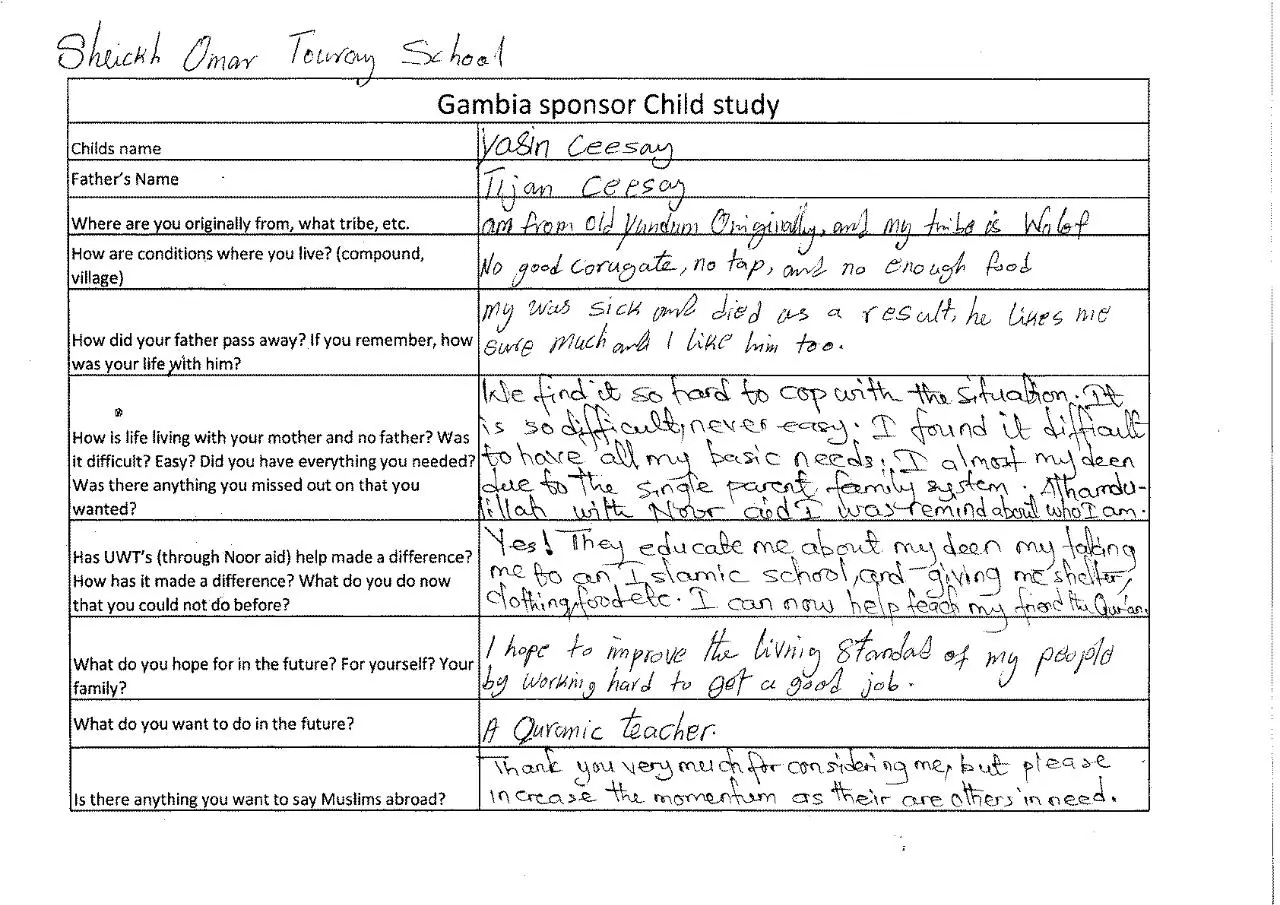 Sheickh Omar Touray School
Gambia sponsor Child study
Childs name
Yasin Ceesay
Father's Name
Tijan Ceesay
Where are you originally from, what tribe, etc.
am from Old Yundum Originally, and my tribe is Wolof
How are conditions where you live? (compound,
village)
No good corugate, no tap, and no enough food
How did your father pass away? If you remember, how
was your life with him?
my was sick and died as a result, he likes me
sure much and I like him too.
How is life living with your mother and no father? Was
it difficult? Easy? Did you have everything you needed?
Was there anything you missed out on that you
wanted?
We find it so hard to cop with the situation. It
is so difficult, never easy. I found it difficult
to have all my basic needs; I almost my deen
due to the single parent family system. Alhamdu-
lillah with Noor aid I was remind about who I am.
Has UWT's (through Noor aid) help made a difference?
How has it made a difference? What do you do now
that you could not do before?
Yes! They educate me about my deen my taking
me to an Islamic school, and giving me shelter,
clothing, food etc. I can now help teach my friend the Qur'an.
What do you hope for in the future? For yourself? Your
family?
I hope to improve the living standad of my people
by working hard to get a good job.
What do you want to do in the future?
A Quranic teacher.
Is there anything you want to say Muslims abroad?
Thank you very much for considering me, but please
increase the momentum as their are others in need.